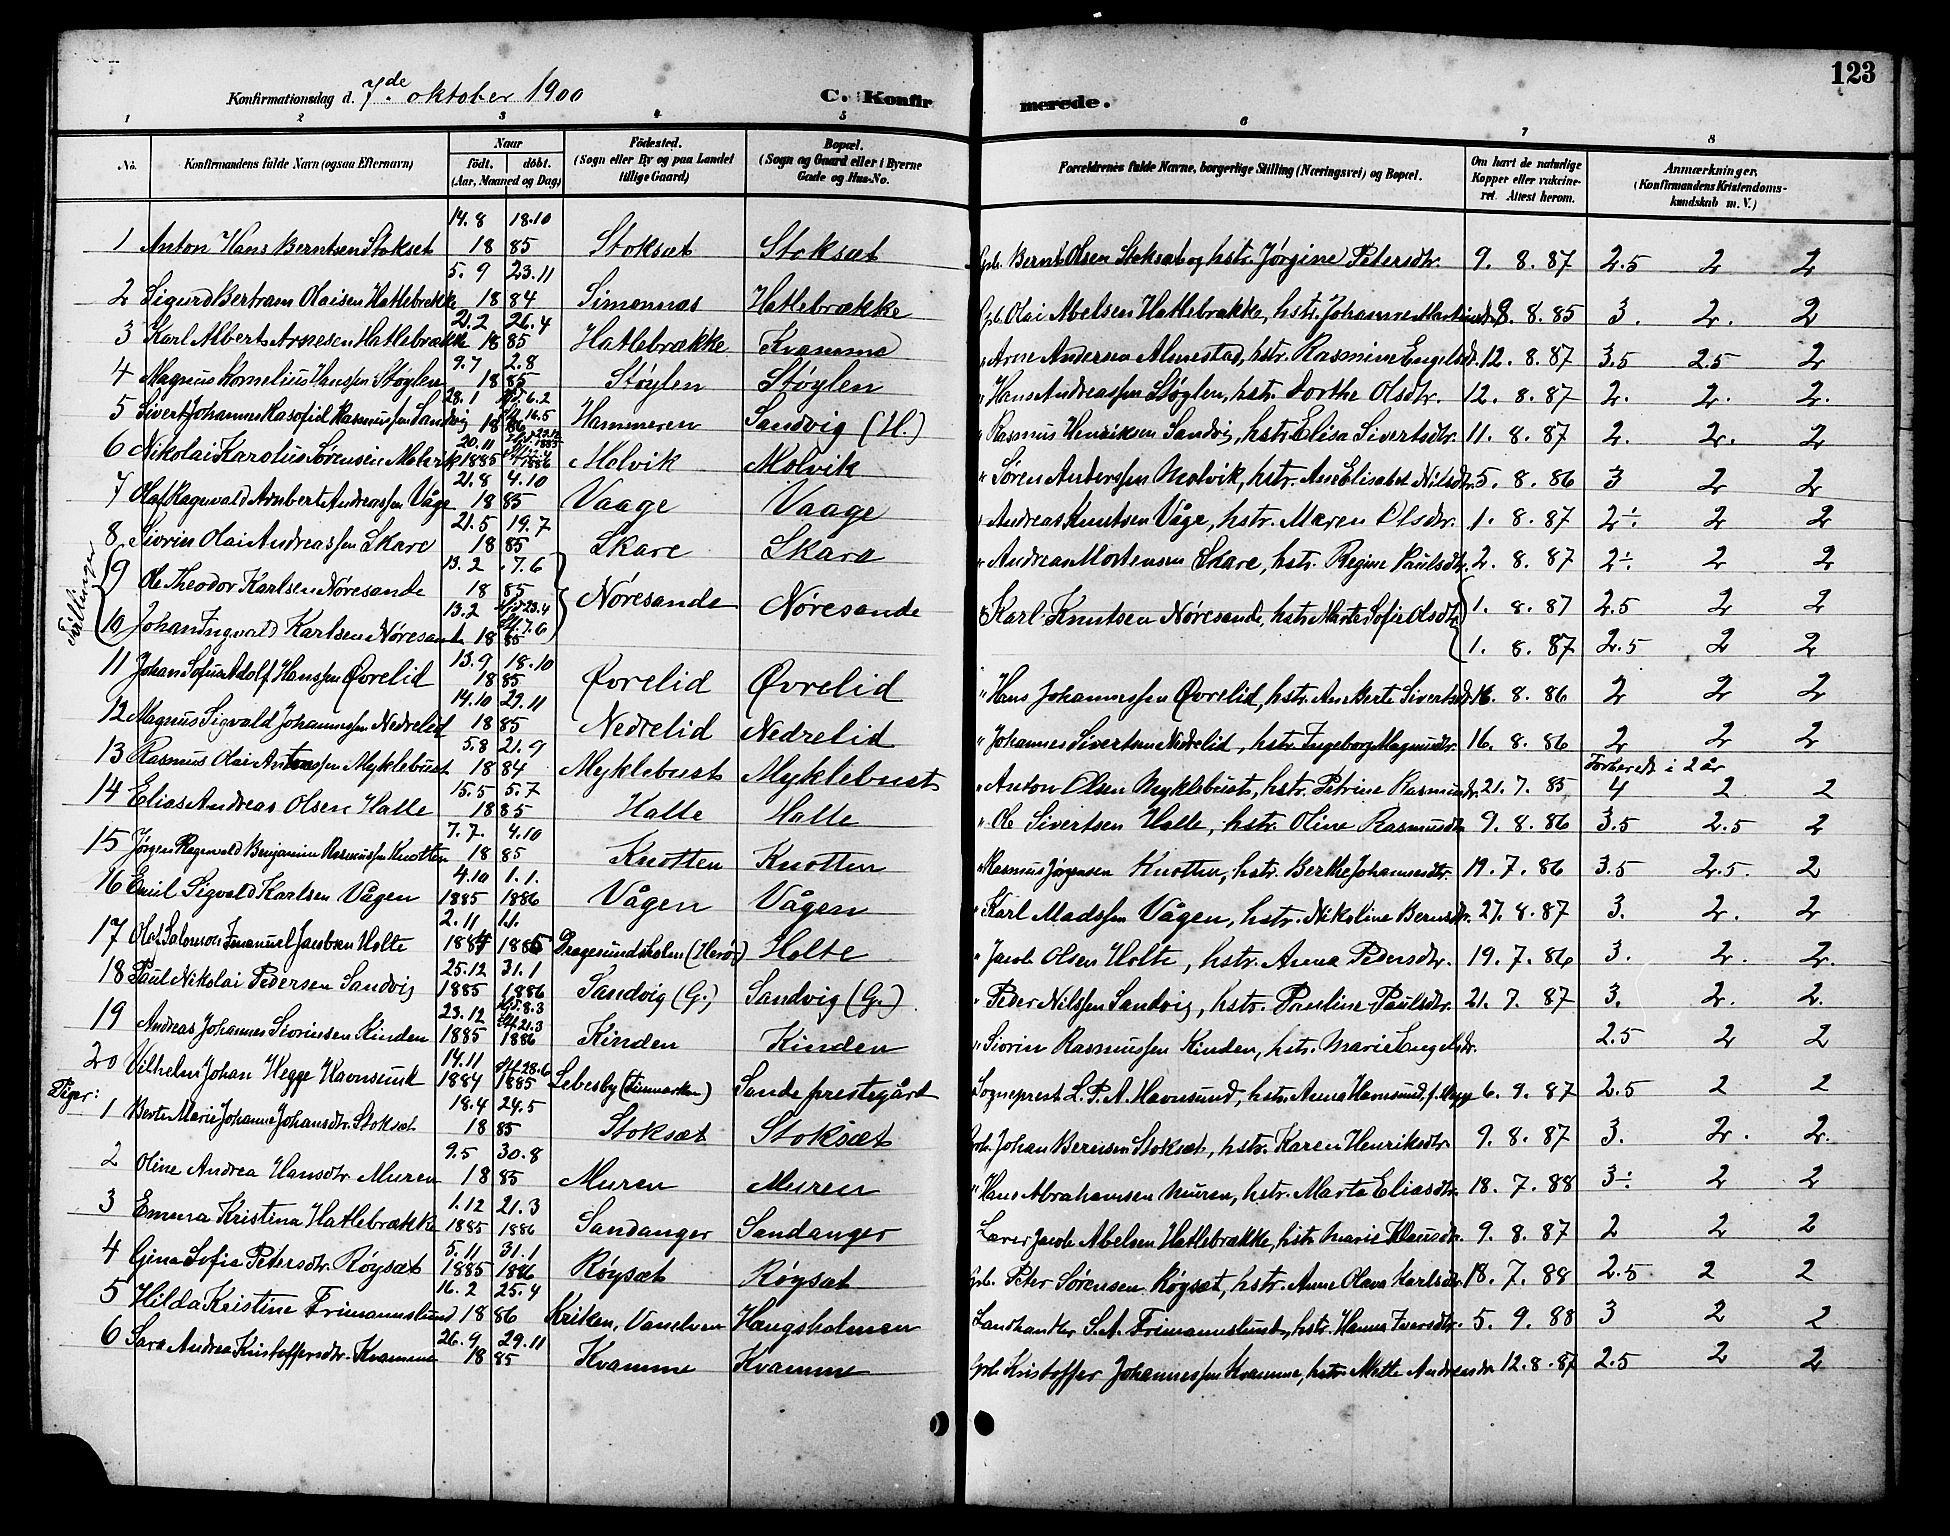 123
Konfirmationsdag d. 7de oktober 1900 C. Konfirmerede.
1 2 3 4 5 6 7 8
No. Konfirmandens fulde Navn (ogsaa Efternavn) Naar født. døbt. (Aar, Maaned og Dag) Fødested. (Sogn eller By og paa Landet tillige Gaard) Bopæl. (Sogn og Gaard eller i Byerne Gade og Hus-No. Forældrenes fulde Navne, borgerlige Stilling (Næringsvei) og Bopæl. Om havt de naturlige Kopper eller vakcineret. Attest herom. Anmærkninger. (Konfirmandens Kristendomskundskab m. V.)
1 Anton Hans Berntsen Stokset 14.8 18.10 1885 Stoksæt Stoksæt Grb. Bernt Olsen Stoksæt og hstr. Jørgine Petersdtr. 9. 8. 87 2.5 2 2
2 Sigurd Bertram Olaisen Hatlebrække 5.9 23.11 1884 Simonnæs Hatlebrække Grb. Olai Abelsen Hatlebrække, hstr. Johanne 8. 8. 85 3. 2. 2
3 Karl Albert Arnesen Hatlebrække 21.2 26.4 1885 Hatlebrække Kvamme " Arne Andersen Almestad, hstr. Rasmine Engelsdtr. 12. 8. 87 3.5 2.5 2
4 Magnus Kornelius Hanssen Støylen 9.7 2.8 1885 Støylen Støylen " Hans Andreassen Støylen, hstr. Dorthe Olsdtr. 12. 8. 87 2. 2. 2.
5 Sivert Johannes Rasmussen Sandvig 28.1 6.2 16.5 1886 Hammeren Sandvig (H.) " Rasmus Henriksen Sandvig, hstr. Elisa Sivertsdtr. 11. 8. 87 2. 2. 2
6 Nikolai Karolius Sørensen Molvik 20.11 1885 1886 Molvik Molvik " Søren Anderssen Molvik, hstr. Ane Elisabet Nilsdtr. 5. 8. 86 3 2 2
7 Olaf Ragnvald Arnbert Andreassen Våge 21.8 4.10 1885 Vaage Vaage " Andreas Knutsen Våge, hstr. Maren Olsdtr. 1. 8. 87 2÷ 2 2
8 Siorin Olai Andreassen Skare 21.5 19.7 1885 Skare Skare " Andreas Mortensen Skare, hstr. Regine Paulsdtr. 2. 8. 87 2÷ 2 2
Tvillinger
9 Ole Theodor Karlsen Nøresande 13.2 7.6 1885 Nøresande Nøresande " Karl Knutsen Nøresande, hstr. Marte Sofie Olsdtr. 1. 8. 87 2.5 2 2
10 Johan Ingvald Karlsen Nøresande 13.2 23.4 7.6 1885 1. 8. 87 2.5 2 2
11 Johan Sofus Adolf Hanssen Øvrelid 13.9 18.10 1885 Øvrelid Øvrelid " Hans Johannessen Øvrelid, hstr. Ane Berte Sivertsdtr. 16. 8. 86 2 2 2
12 Magnus Sigvald Johannessen Nedrelid 14.10 29.11 1885 Nedrelid Nedrelid " Johannes Sivertsen Nedrelid, hstr. Ingeborg Magnusdtr. 16. 8. 86 2 2 2
13 Rasmus Olai Antonssen Myklebust 5.8 21.9 1884 Myklebust Myklebust " Anton Olsen Myklebust, hstr. Petrine Rasmusdtr. 21. 7. 85 Forberedt i 2 år 4 2 2
14 Elias Andreas Olsen Halle 15.5 5.7 1885 Halle Halle " Ole Sivertsen Halle, hstr. Oline Rasmusdtr. 9. 8. 86 3.5 2.5 2
15 Jørgen Ragnvald Benjamin Rasmussen Knotten 7.7. 4.10 1885 Knotten Knotten " Rasmus Jørgensen Knotten, hstr. Berthe Johannesdtr. 19. 7. 86 3.5 2.5. 2
16 Emil Sigvald Karlsen Vågen 4.10 1.1. 1885 1886 Vågen Vågen " Karl Madssen Vågen, hstr. Nikoline Berntsdtr. 27. 8. 87 3. 2. 2
17 Olaf Salomon Emanuel Jacobsen Holte 2.11 1.1. 1884 1885 Dragesundsholm (Herø) Holte " Jacob Olsen Holte, hstr. Anna Pedersdtr. 19. 7. 86 3. 2. 2.
18 Paul Nikolai Pedersen Sandvig 25.12 31.1 1885 1886 Sandvig (G.) Sandvig (G.) " Peder Nilssen Sandvig, hstr. Pauline Paulsdtr. 21. 7. 87 3. 2. 2.
19 Andreas Johannes Siorinsen Kinden 23.12 8.3 21.3 1885 1886 Kinden Kinden " Siorin Rasmussen Kinden, hstr. Marie Engelsdtr. 2.5 2 2
20 Vilhelm Johan Hegge Havnsund 14.11 28.6 1884 1885 Lebesby (Finmarken) Sande prestegård Sogneprest L. P. A. Havnsund, hstr. Anna Havnsund, f. Hegge 6. 9. 87 2.5 2 2
Piger:
1 Berte Marie Johanne Johansdtr. Stoksæt 18.4 24.5 1885 Stoksæt Stoksæt Grb. Johan Berntsen Stoksæt, hstr. Karen Henriksdtr. 9. 8. 87 3. 2. 2.
2 Oline Andrea Hansdtr. Muren 9.5 30.8 1885 Muren Muren " Hans Abrahamsen Muren, hstr. Marta Eliasdtr. 18. 7. 88 3÷ 2 2
3 Emma Kristina Hatlebrække 1.12 21.3 1885 1886 Sandanger Sandanger Lærer Jacob Abelsen Hatlebrække, hstr. Marie Klausdtr. 9. 8. 87 2 2 2
4 Gina Sofie Petersdtr. Røysæt 5.11 31.1 1885 1886 Røysæt Røysæt Grb. Peter Sørensen Røysæt, hstr. Anne Olava Karlsdtr. 18. 7. 88 2.5 2 2
5 Hilda Kristine Frimannslund 16.2 25.4 1886 Kriken, Vanelven Haugsholmen Landhandler S. A. Frimannslund, hstr. Hanna Iversdtr. 5. 9. 88 3 2 2
6 Sara Andrea Kristoffersdtr. Kvamme 26.9 29.11 1885 Kvamme Kvamme Grb. Kristoffer Johannessen Kvamme, hstr. Mette Andreasdtr. 12. 8. 87 2.5 2 2